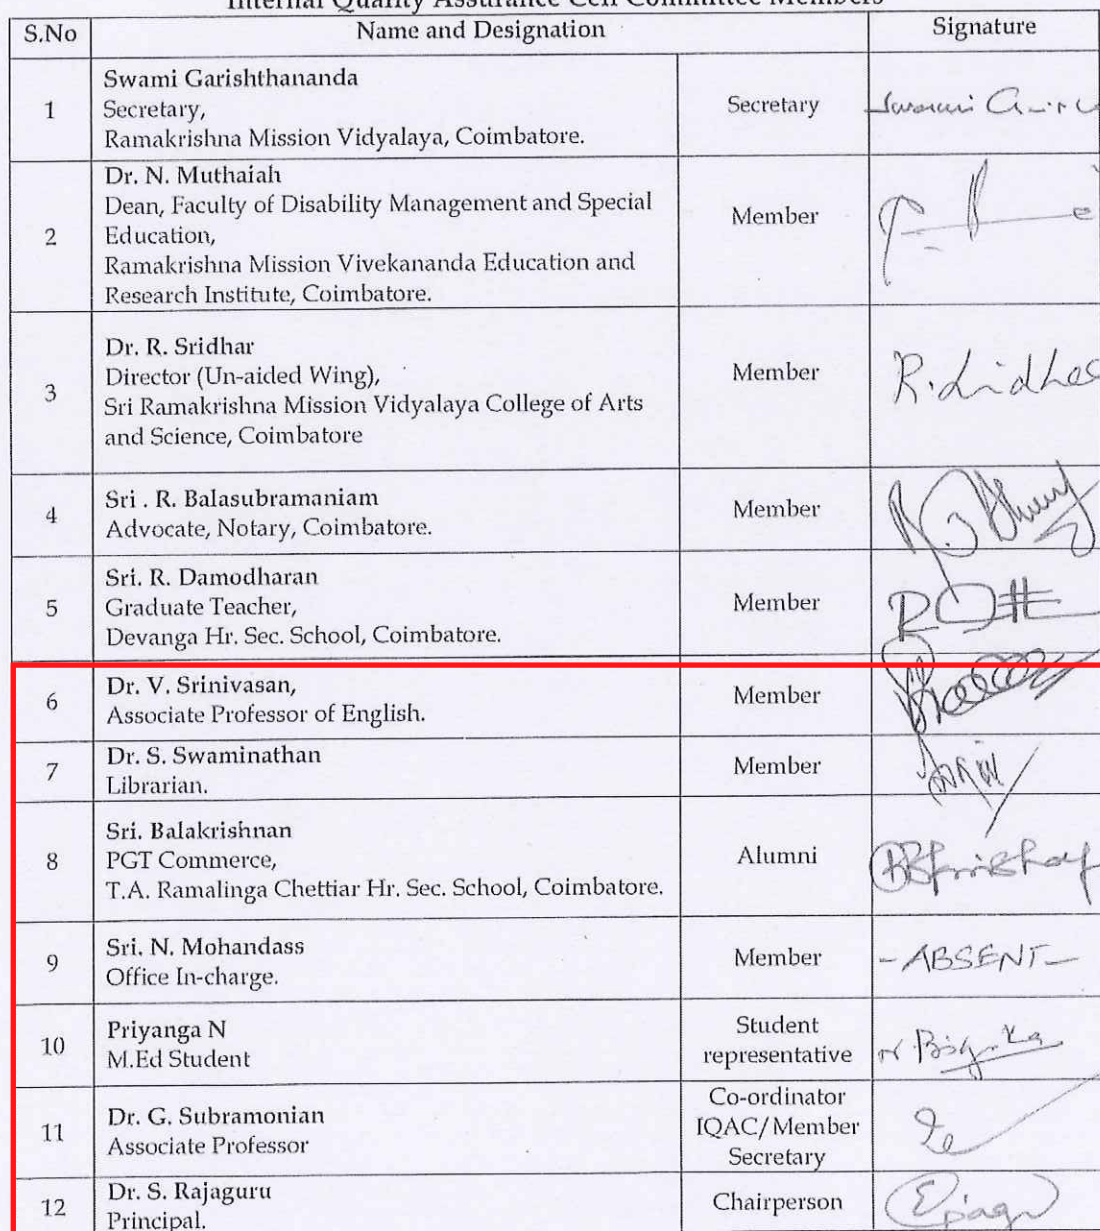 Internal Quality Assurance Cell Committee Members
S.No Name and Designation Signature
1
Swami Garishthananda
Secretary,
Ramakrishna Mission Vidyalaya, Coimbatore.
Secretary
Swami
2
Dr. N. Muthaiah
Dean, Faculty of Disability Management and Special
Education,
Ramakrishna Mission Vivekananda Education and
Research Institute, Coimbatore.
Member
3
Dr. R. Sridhar
Director (Un-aided Wing),
Sri Ramakrishna Mission Vidyalaya College of Arts
and Science, Coimbatore
Member
R. Sridhar
4
Sri . R. Balasubramaniam
Advocate, Notary, Coimbatore.
Member
5
Sri. R. Damodharan
Graduate Teacher,
Devanga Hr. Sec. School, Coimbatore.
Member
6
Dr. V. Srinivasan,
Associate Professor of English.
Member
7
Dr. S. Swaminathan
Librarian.
Member
8
Sri. Balakrishnan
PGT Commerce,
T.A. Ramalinga Chettiar Hr. Sec. School, Coimbatore.
Alumni
9
Sri. N. Mohandass
Office In-charge.
Member
- ABSENT -
10
Priyanga N
M.Ed Student
Student
representative
11
Dr. G. Subramonian
Associate Professor
Co-ordinator
IQAC/Member
Secretary
12
Dr. S. Rajaguru
Principal.
Chairperson